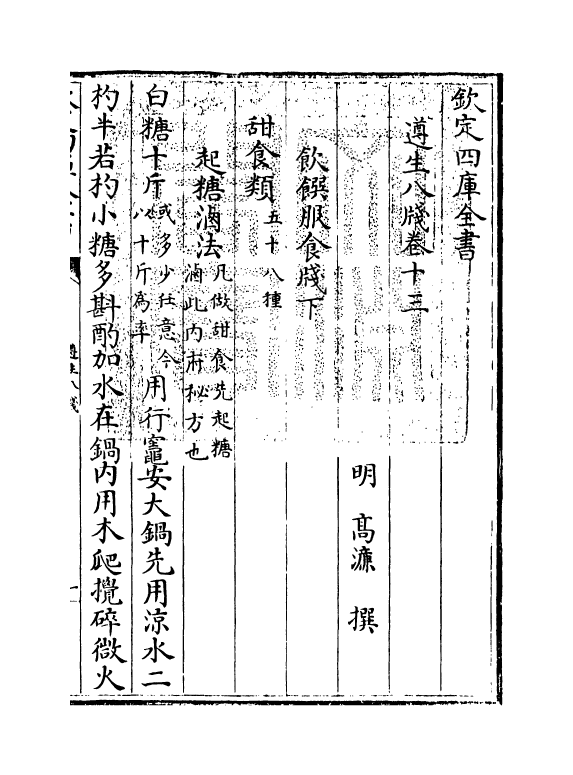 欽定四庫全書
遵生八牋卷十三
明 高濂 撰
飲饌服食牋下
甜食類五十八種
起糖滷法凡做甜食先起糖滷此内府秘方也
白糖十斤或多少任意今以十斤為率用行竈安大鍋先用涼水二
杓半若杓小糖多斟酌加水在鍋内用木爬攪碎微火
遵生八牋